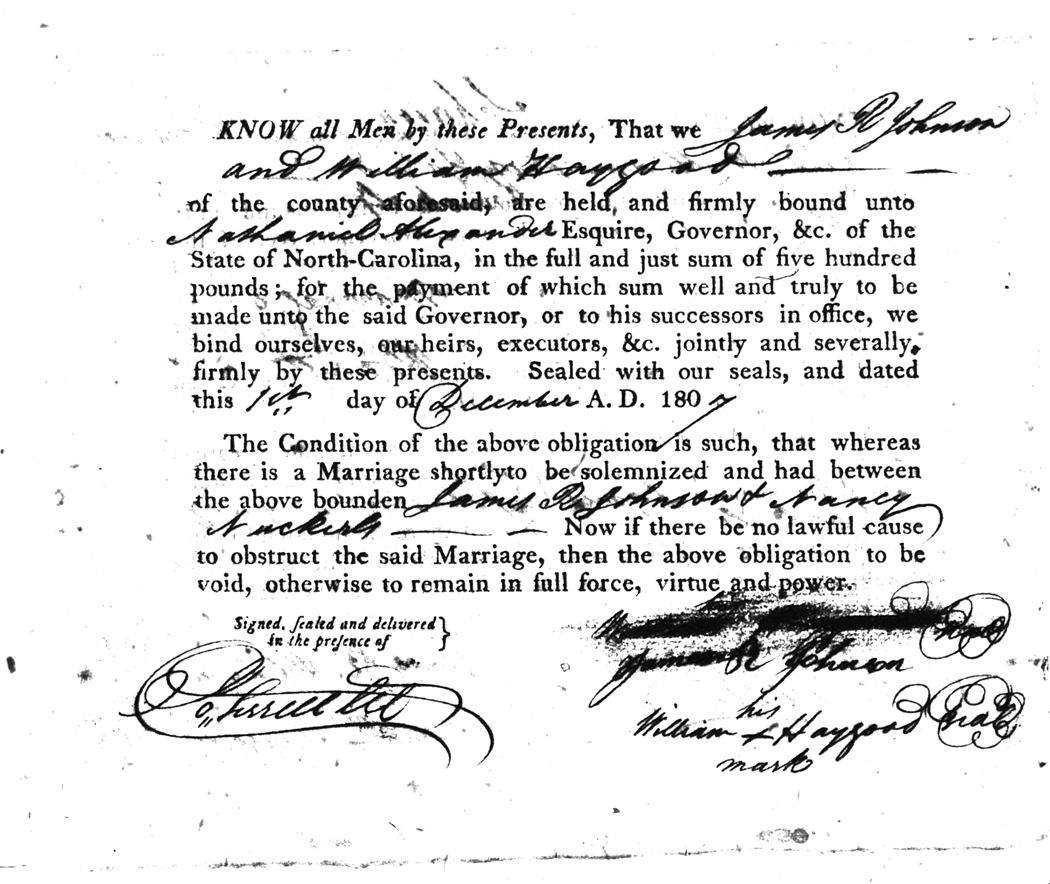 KNOW all Men by these Presents, That we James R Johnson
and William Haygood
of the county aforesaid, are held, and firmly bound unto
Nathaniel Alexander Esquire, Governor, &c. of the
State of North-Carolina, in the full and just sum of five hundred
pounds; for the payment of which sum well and truly to be
made unto the said Governor, or to his successors in office, we
bind ourselves, our heirs, executors, &c. jointly and severally,
firmly by these presents. Sealed with our seals, and dated
this 1st day of December A. D. 1807
The Condition of the above obligation is such, that whereas
there is a Marriage shortly to be solemnized and had between
the above bounden James R Johnson & Nancy
Nuckerls Now if there be no lawful cause
to obstruct the said Marriage, then the above obligation to be
void, otherwise to remain in full force, virtue and power.
Signed, sealed and delivered
in the presence of
seal
James R Johnson
his
William x Haygood seal
mark